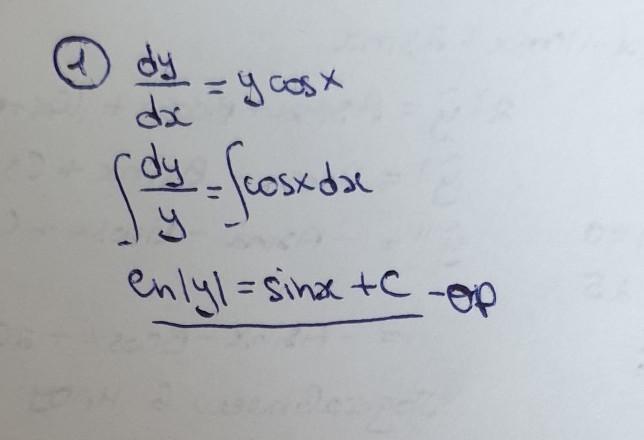 ① dy/dx = y cos x
∫ dy/y = ∫ cosx dx
ln|y| = sinx + C - ОР